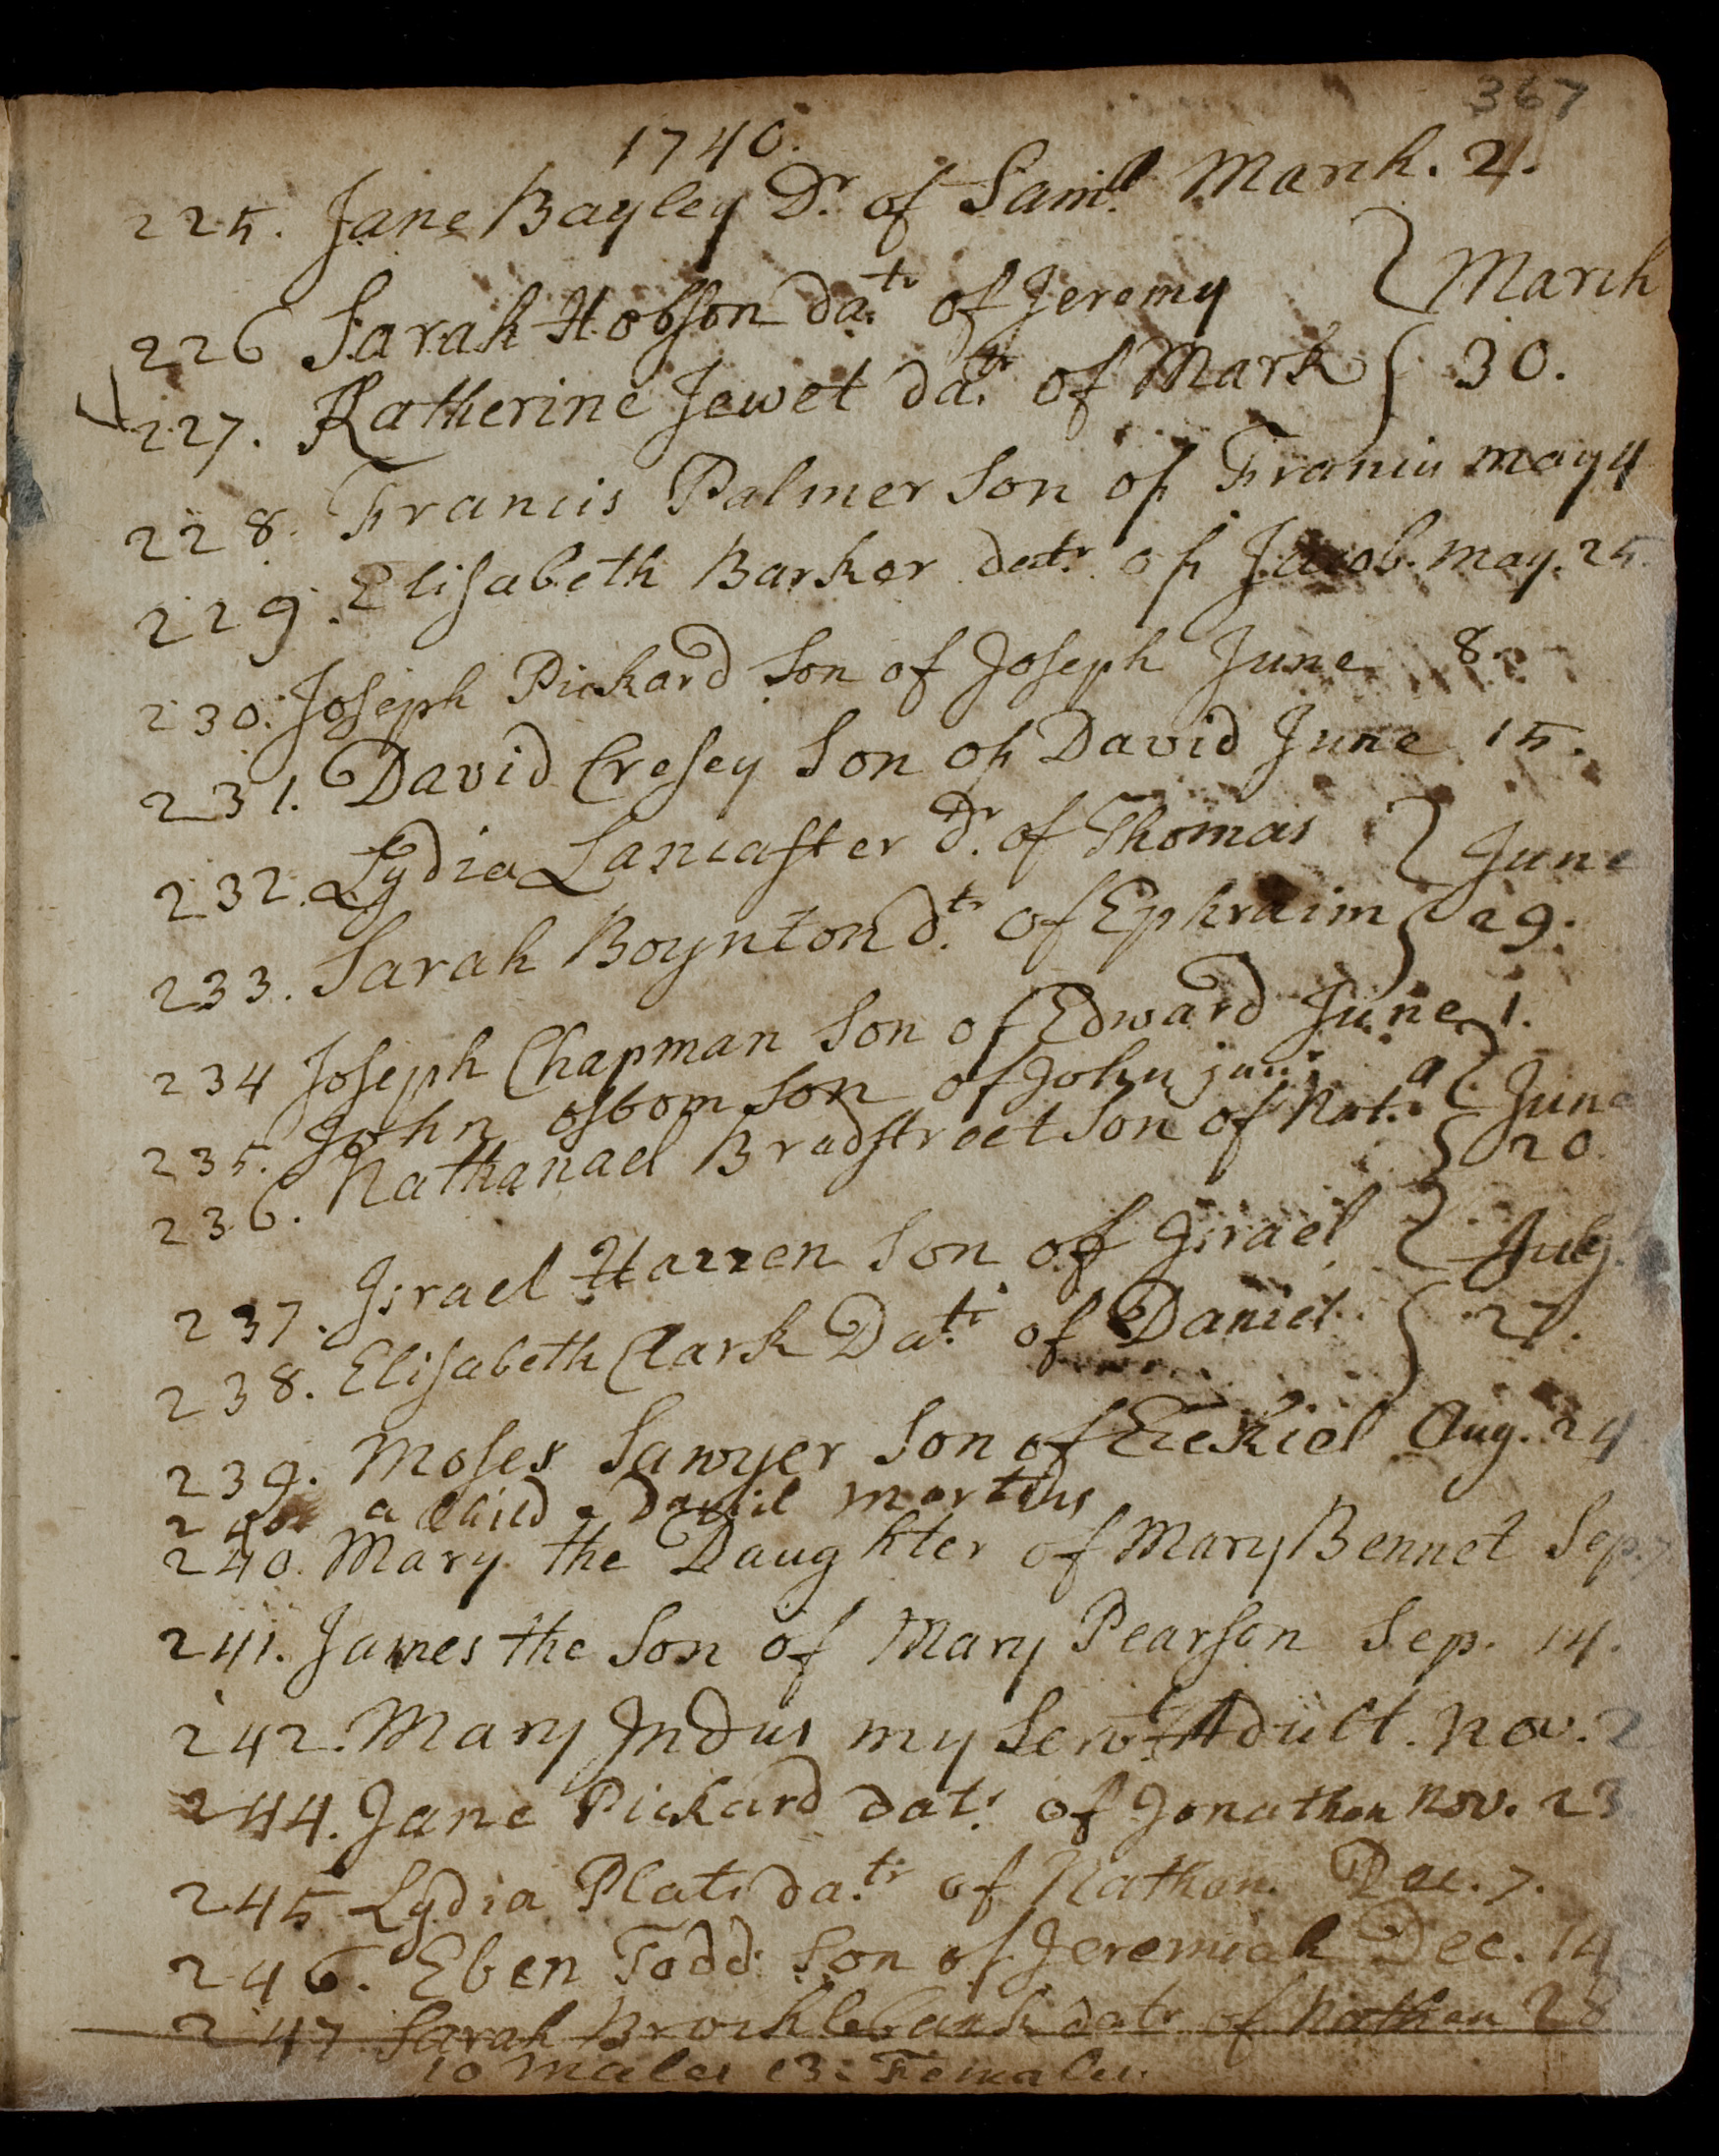 367
1740.
225. Jane Bayley Dr. of Samll March. 2.
226 Sarah Hobson datr. of Jeremy } March
227. Katherine Jewet datr. of Mark } 30.
228. Francis Palmer Son of Francis may 4
229. Elisabeth Barker datr. of Jacob. may. 25.
230. Joseph Pickard Son of Joseph June 8.
231. David Cresey Son of David June 15.
232. Lydia Lancaster Dr. of Thomas } June
233. Sarah Boynton dtr. of Ephraim } 29.
234 Joseph Chapman Son of Edward June 1.
235. John osborn son of John junr. } June
236. Nathanael Bradstreet Son of Nat. } 20.
237. Israel Hazzen Son of Israel } July
238. Elisabeth Clark Datr. of Daniel } 27.
239. Moses Sawyer Son of Ezekiel Aug. 24
240 a child
240. Mary the Daughter of Mary Bennet Sep. 7
241. James the Son of Mary Pearson Sep. 14.
242. Mary Indus my Servt. Adult. Nov. 2
244. Jane Pickard datr. of Jonathan Nov. 23
245 Lydia Plats datr. of Nathan. Dec. 7.
246. Eben Todd Son of Jeremiah Dec. 14
247 Sarah Brocklebank datr of Nathan 28
10 Males 13: Females.